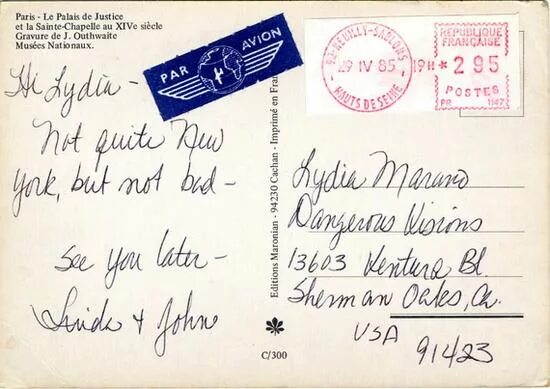 Paris - Le Palais de Justice
et la Sainte-Chapelle au XIVe siècle
Gravure de J. Outhwaite
Musées Nationaux.
PAR AVION
92-NEUILLY-SABLONS
29 IV 85
HAUTS DE SEINE
19H *
RÉPUBLIQUE
FRANÇAISE
295
POSTES
PR 1147
Hi Lydia -
Not quite New
York, but not bad -
See you later -
Linda + John
Editions Maronian - 94230 Cachan - Imprimé en Fran
C/300
Lydia Marano
Dangerous Visions
13603 Ventura Bl.
Sherman Oakes, Ca.
USA
91423